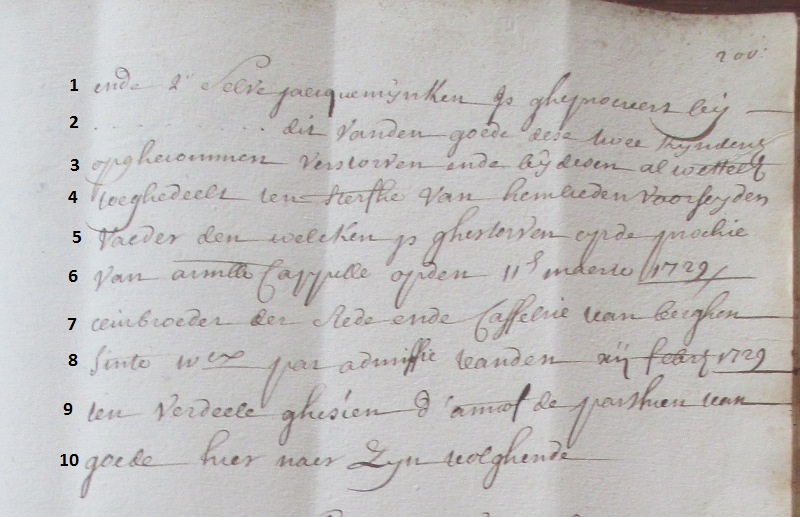 1 ende d' selve jacquemijnken is gheprocreert bij
2 . . . . . . . . . . . . dit vanden goede dese twee kijnders
3 opghecommen verstorven ende bij desen al wettelt
4 toeghedeelt ten sterfhe van hemlieden voorseyden
5 Vaeder den welcken is ghestorven op de prochie
6 van Cappelle opden 11 maerte 1729
7 ceurbroeder der stede ende Casselrie van berghen
8 Sinte par admissie vanden xij febry 1729
9 ten verdeele ghesien d' de parthien van
10 goede hier naer Zijn volghende